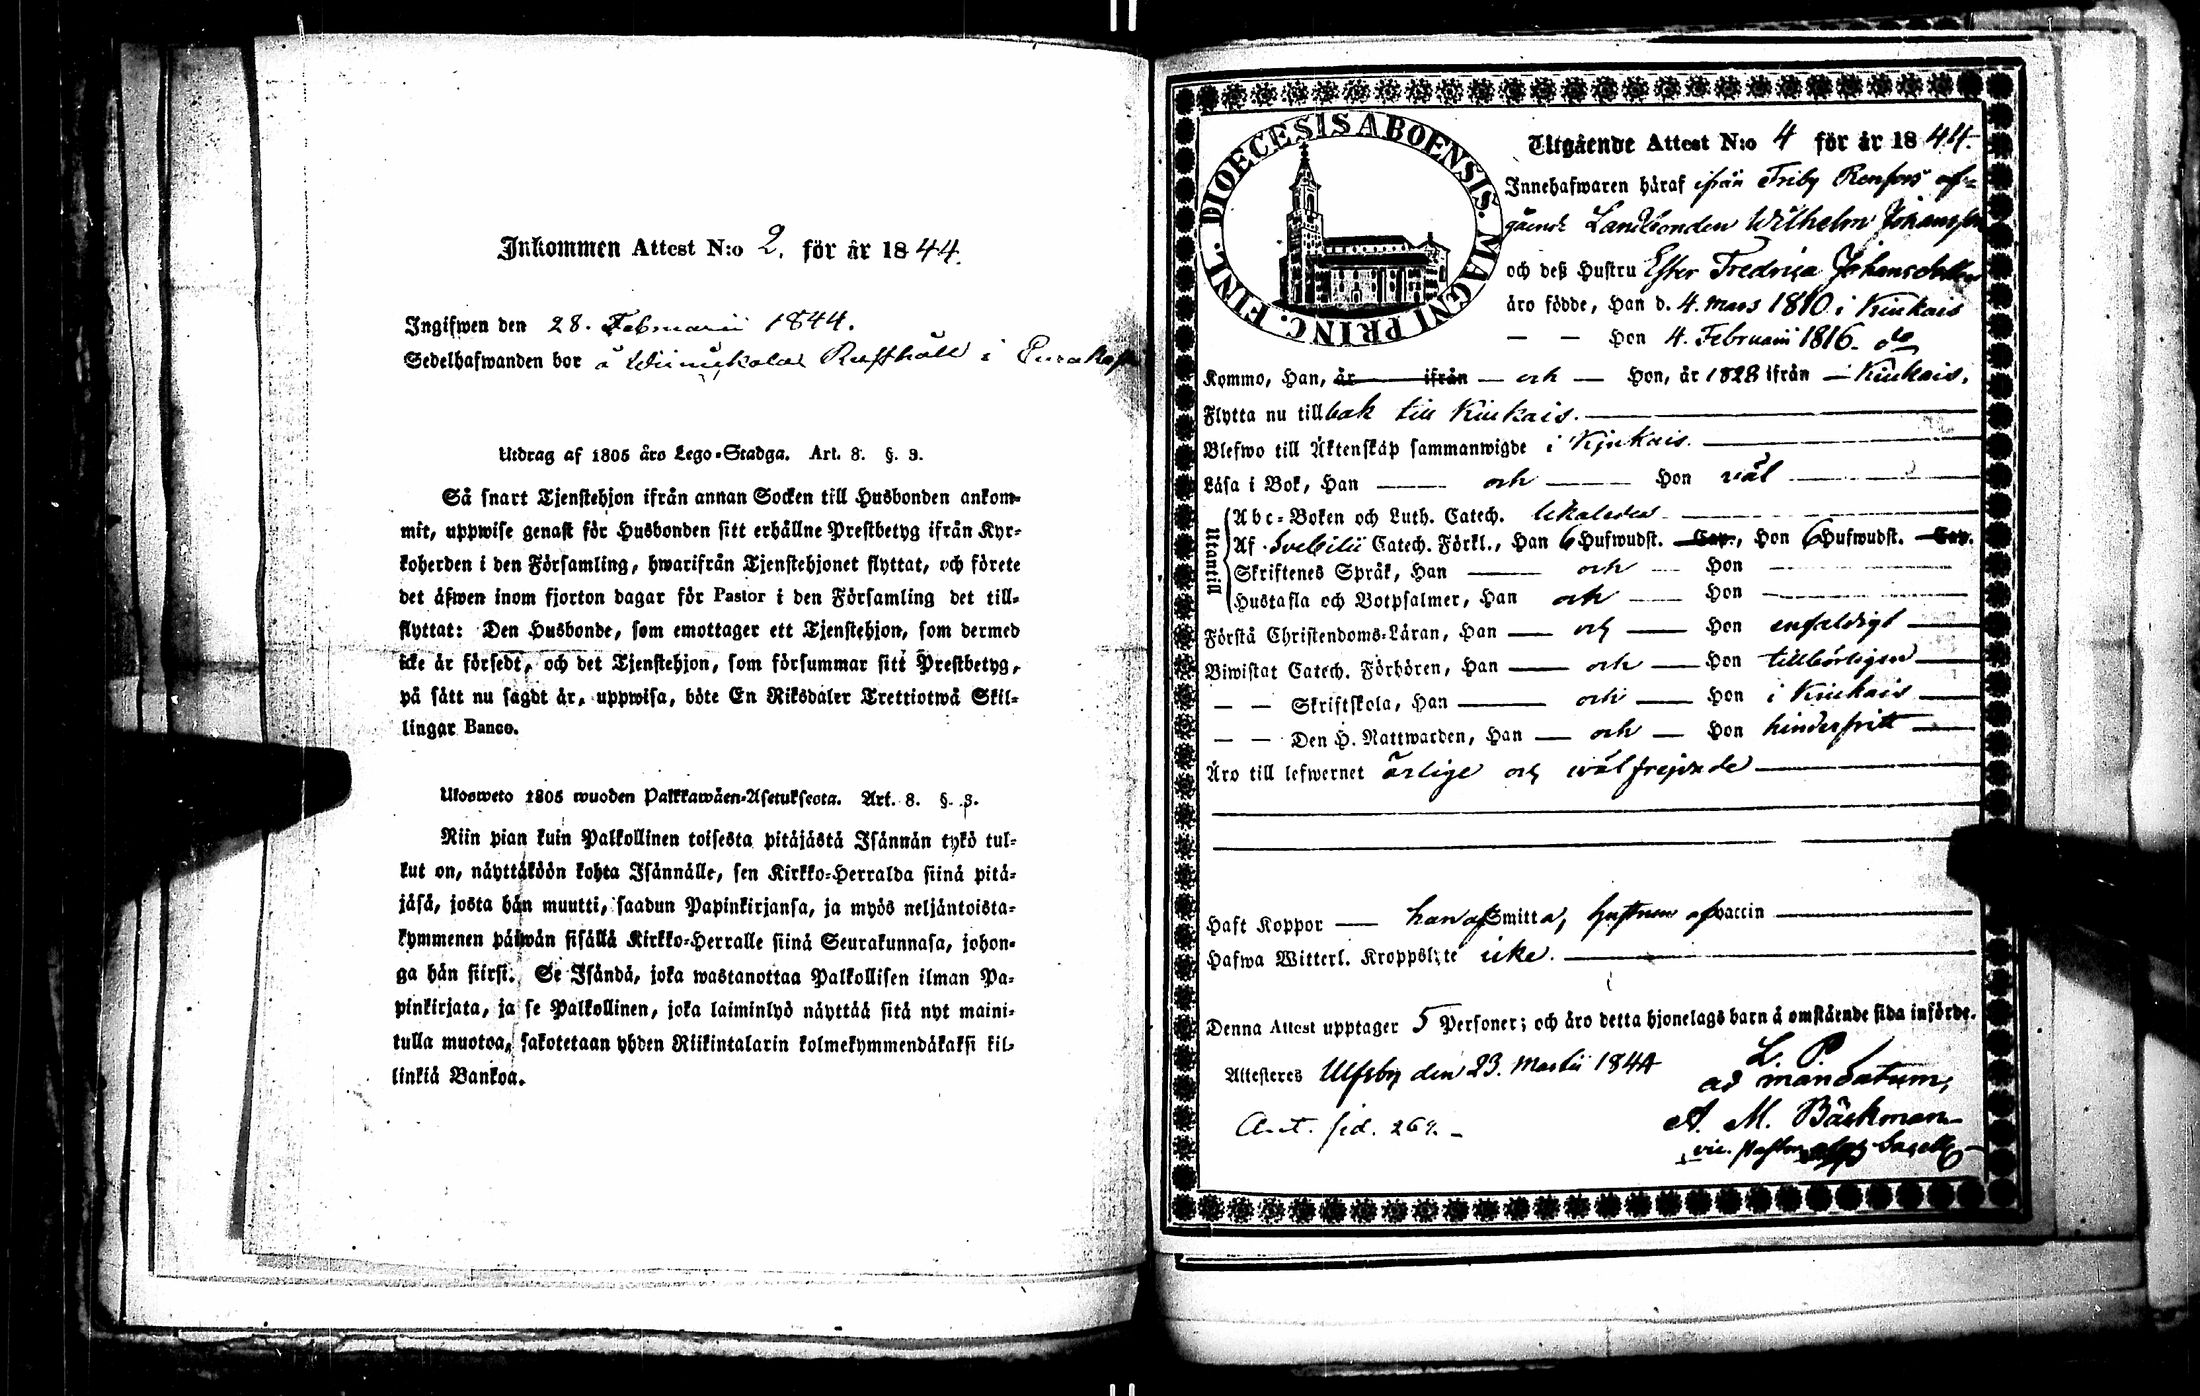 Inkommen Attest N:o 2. för år 1844.
Ingifwen den 28. Februarii 1844.
Sedelhafwanden bor å Rusthåll i
Utdrag af 1805 års Lego-Stadga. Art. 8. §. 3.
Så snart Tjenstehjon ifrån annan Socken till Husbonden ankom-
mit, uppwise genast för Husbonden sitt erhållne Prestbetyg ifrån Kyr-
koherden i den Församling, hwarifrån Tjenstehjonet flyttat, och förete
det äfwen inom fjorton dagar för Pastor i den Församling det till-
flyttat: Den Husbonde, som emottager ett Tjenstehjon, som dermed
icke är försedt, och det Tjenstehjon, som försummar sitt Prestbetyg,
på sätt nu sagdt är, uppwisa, böte En Riksdaler Trettiotwå Skil-
lingar Banco.
Ulosweto 1805 wuoden Palkkawäen-Asetuksesta. Art. 8. §. 3.
Niin pian kuin Palkollinen toisesta pitäjästä Isännän tykö tul-
kut on, näyttäköön kohta Isännälle, sen Kirkko-Herralda siinä pitä-
jäsä, josta hän muutti, saadun Papinkirjansa, ja myös neljäntoista-
kymmenen päiwän sisällä Kirkko-Herralle siinä Seurakunnasa, johon-
ga hän siirsi. Se Isändä, joka wastanottaa Palkollisen ilman Pa-
pinkirjata, ja se Palkollinen, joka laiminlyö näyttää sitä nyt maini-
tulla muotoa, sakotetaan yhden Riikintalarin kolmekymmendäkaksi kil-
linkiä Bankoa.
FINL. DIOECESIS ABOENSIS. MAGNI PRINC.
Utgående Attest N:o 4 för år 1844.
Innehafwaren häraf ifrån Friby Renfors af-
gående Landbonden Wilhelm Johansson
och deß Hustru Ester Fredrica Johansdotter
äro födde, Han d. 4. Mars 1810 i Kiukais
— — Hon 4. Februarii 1816. do
Kommo, Han, år ifrån — och — Hon, år 1828 ifrån — Kiukais.
Flytta nu tillbak till Kiukais.
Blefwo till Äktenskap sammanwigde i Kjukais.
Läsa i Bok, Han — och — Hon wäl
Utantill
Abc-Boken och Luth. Catech. likaledes
Af Svebilii Catech. Förkl., Han 6 Hufwudst. Cap., Hon 6 Hufwudst. Cap.
Skriftenes Språk, Han — och — Hon
Hustafla och Botpsalmer, Han och — Hon
Förstå Christendoms-Läran, Han — och — Hon enfaldigt
Biwistat Catech. Förhören, Han — och — Hon tillbörligen
— — Skriftskola, Han — och — Hon i Kiukais
— — Den H. Nattwarden, Han — och — Hon hinderfritt
Äro till lefwernet ärlige och wälfrejdade
Haft Koppor — han af Smitta, hustrun af vaccin
Hafwa Witterl. Kroppslyte icke.
Denna Attest upptager 5 Personer; och äro detta hjonelags barn å omstående sida införde.
Attesteres Ulfsby den 23. Martii 1844
L. P.
ad mandatum,
A. M. Bäckman
vic. Pastor
Ant. sid. 269.